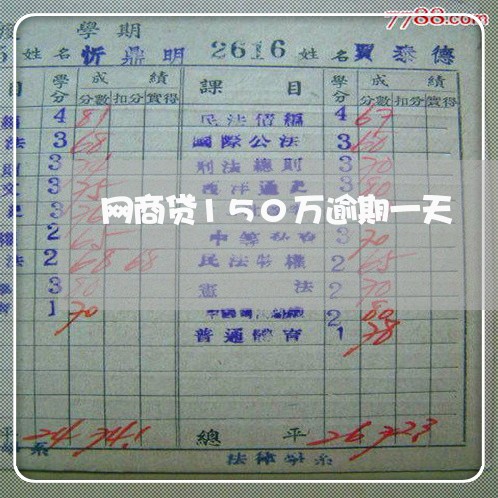 7788.com
學期
姓名 忻鼎明 2616 姓名 賈泰德
目 學分 成績 課目 學分 成績
分數 扣分 實得 分數 扣分 實得
4 81 民法債編 4 67
法 3 68 國際公法 3 60
3 刑法總則 3 70
3 75 西洋通史 3 80
网商贷150万逾期一天
2 65 3 70
法 2 68 68 民法物權 2 65
3 80 憲法 2 70
1 70 2 80
普通體育 1 78
平 24 74.1 總平 26 72.3
系 法律學系